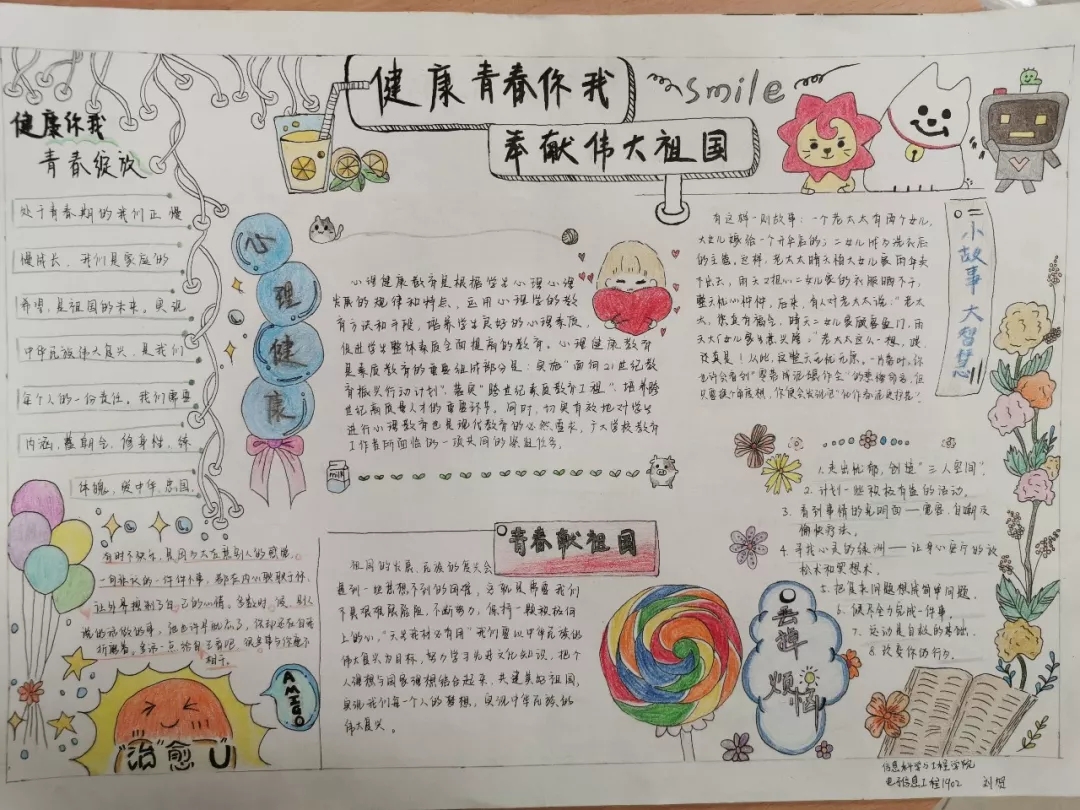 健康青春你我
奉献伟大祖国
smile
健康你我
青春绽放
处于青春期的我们正慢
慢成长，我们是家庭的
希望，是祖国的未来。实现
中华民族伟大复兴，是我们
每个人的一份责任。我们需要
内涵，修身性，练
体魄，爱中华，忠国。
心理健康
心理健康教育是根据学生心理心理
发展的规律和特点，运用心理学的教
育方法和手段，培养学生良好的心理素质，
促进学生整体素质全面提高的教育。心理健康教育
是素质教育的重要组成部分是：实施"面向21世纪教
育振兴行动计划"，落实"跨世纪素质教育工程"，培养跨
世纪高质量人才的重要环节。同时，切实有效地对学生
进行心理教育也是现代教育的必然要求，广大学校教育
工作者所面临的一项共同的紧迫任务。
小故事 大智慧
有这样一则故事：一个老太太有两个女儿，
大女儿嫁给一个开伞店的；二女儿成为洗衣店
的主管。这样，老太太晴天怕大女儿家雨伞卖
不出去，雨天又担心二女儿家的衣服晒不干，
整天忧心忡忡。后来，有人对老太太说："老太
太，您真有福气，晴天二女儿家顾客盈门，雨
天大女儿家生意兴隆。"老太太这么一想，
从此，这整天无忧无虑。
有时不快乐，是因为太在意别人的感受，
一句抹杀的一件件小事，都在内心
多数时候，别人
折磨着。多话一点给自己看吧，很多事与你毫不
相干。
"治"愈"U"
AMIGO
青春献祖国
祖国的发展，民族的复兴会
遇到一些意想不到的困难，这就是需要我们
不畏艰难险阻，不断努力，保持一颗积极向
上的心，"天生我材必有用"我们要以中华民族的
伟大复兴为目标，努力学习先进文化知识，把个
人理想与国家理想结合起来，共建美好祖国，
实现我们每一个人的梦想，实现中华民族的
伟大复兴。
去掉烦恼
1.走出忧郁，创造"三人空间"。
2.计划一些积极有益的活动。
3.看到事情的光明面——宽容、自嘲及
愉快疗法。
4.寻找心灵的绿洲——让身心变斤的放
松术和冥想术。
5.把复杂问题想成简单问题。
6.做尽全力完成一件事。
7.运动是自救的基础。
8.改变你的行为。
信息科学与工程学院
电子信息工程1902 刘